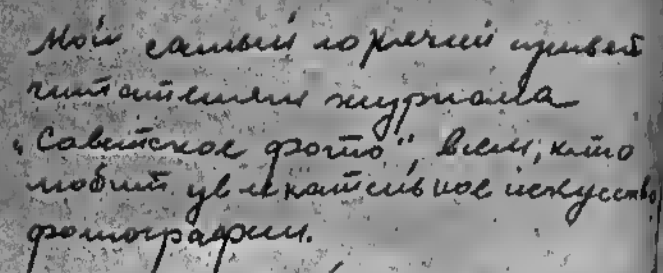 Мой самый горячий привет
читателям журнала
„Советское фото“, всем, кто
любит увлекательное искусство
фотографии.